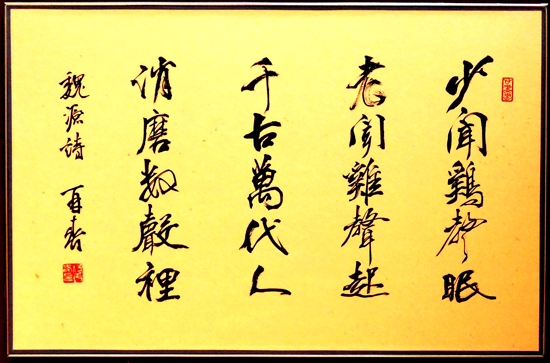 少聞鷄聲眠
老聞雞聲起
千古萬代人
消磨數聲裡
魏源詩